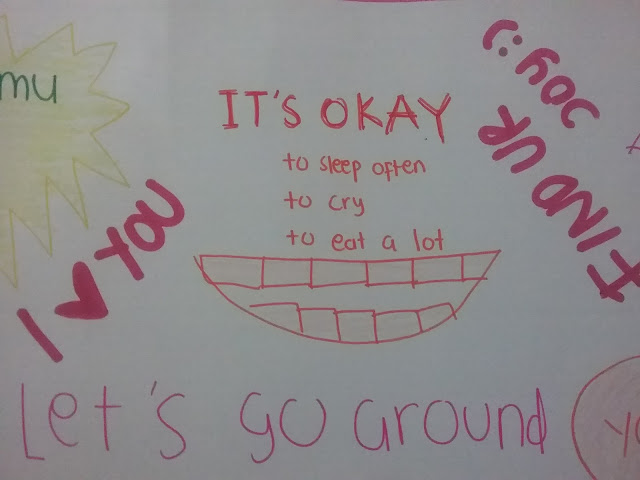 mu
IT'S OKAY
to sleep often
to cry
to eat a lot
I ♥ YOU
FIND UR
Joy :)
Let's go around